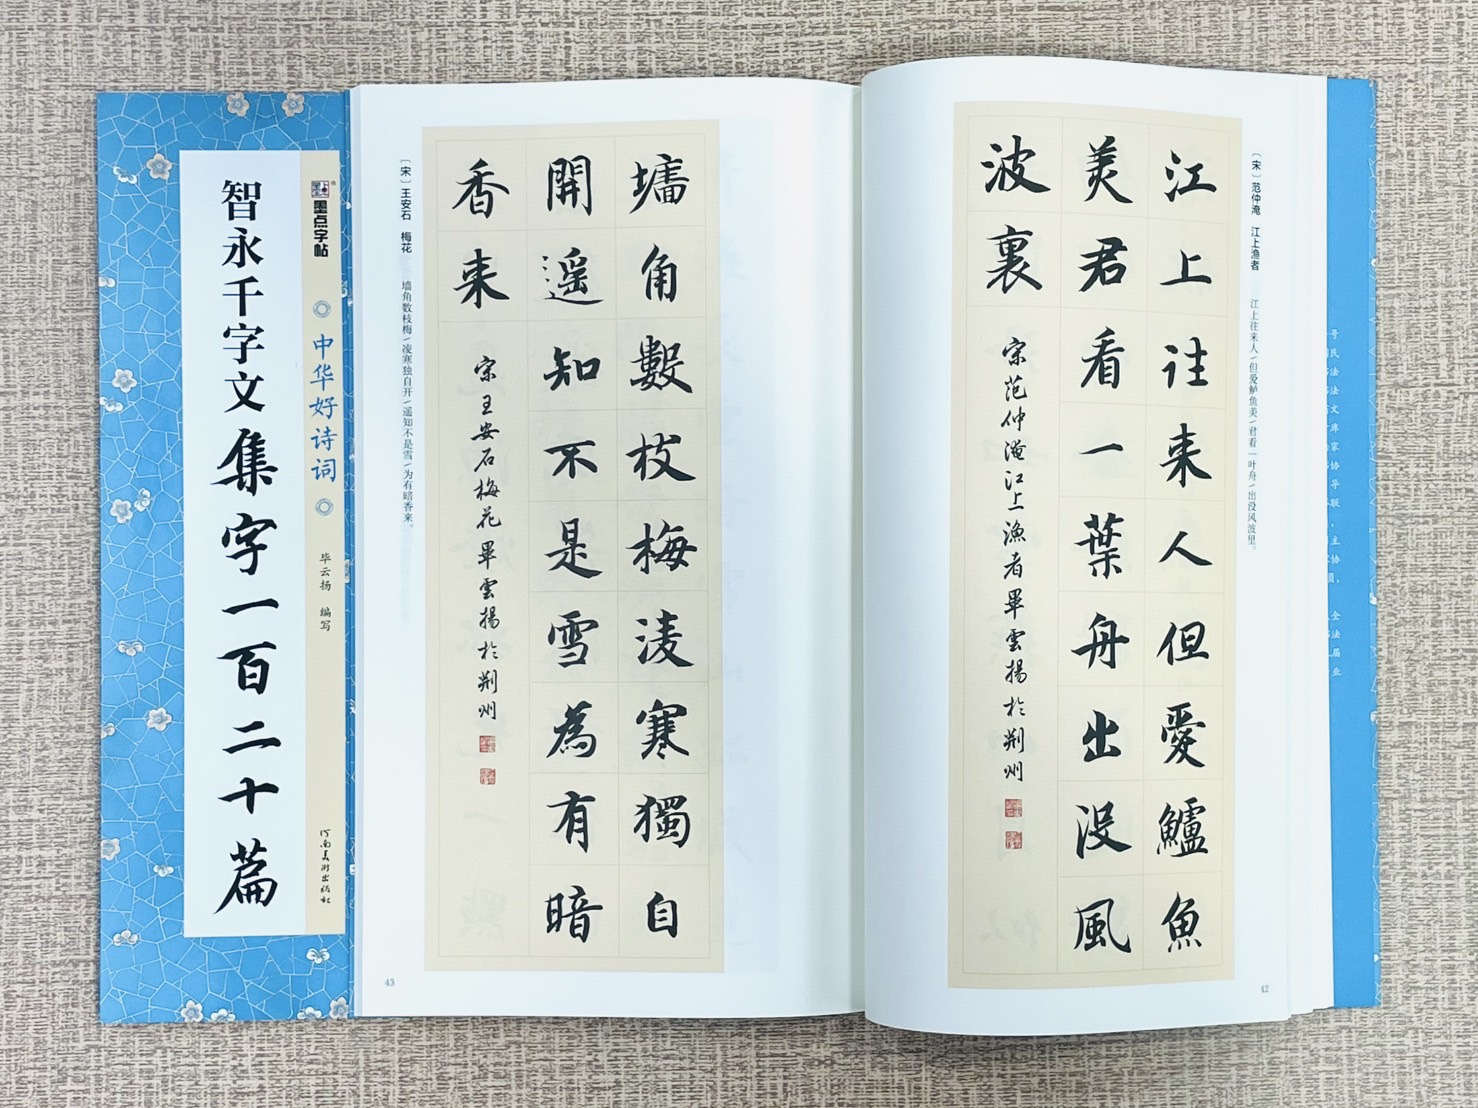 智永千字文集字一百二十篇
墨点字帖
中华好诗词
毕云扬 编写
河南美术出版社
〔宋〕范仲淹 江上渔者 江上往来人/但爱鲈鱼美/君看一叶舟/出没风波里。
江上往来人但愛鱸魚
美君看一葉舟出没風
波裏
宋范仲淹江上漁者畢雲揚於荆州
42
〔宋〕王安石 梅花 墙角数枝梅/凌寒独自开/遥知不是雪/为有暗香来。
墻角數枝梅淩寒獨自
開遥知不是雪為有暗
香来
宋王安石梅花畢雲揚於荆州
43